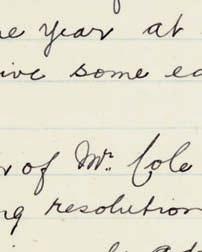 e year at
ive some ea
r of Mr. Cole
ng resolution